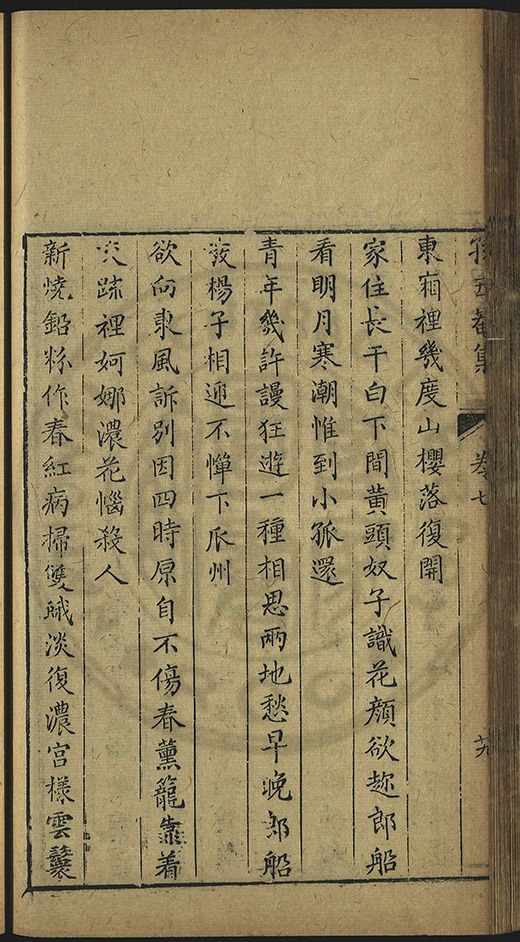 集 卷七
東廂裡幾度山櫻落復開
家住長干白下間黃頭奴子識花顏欲趂郎船
看明月寒潮惟到小孤還
青年幾許謾狂遊一種相思兩地愁早晚郎船
發楊子相迎不憚下瓜州
欲向東風訴別因四時原自不傷春薰籠靠着
疎裡妸娜濃花惱殺人
新燒鉛粉作春紅病掃雙蛾淡復濃宮樣雲鬟